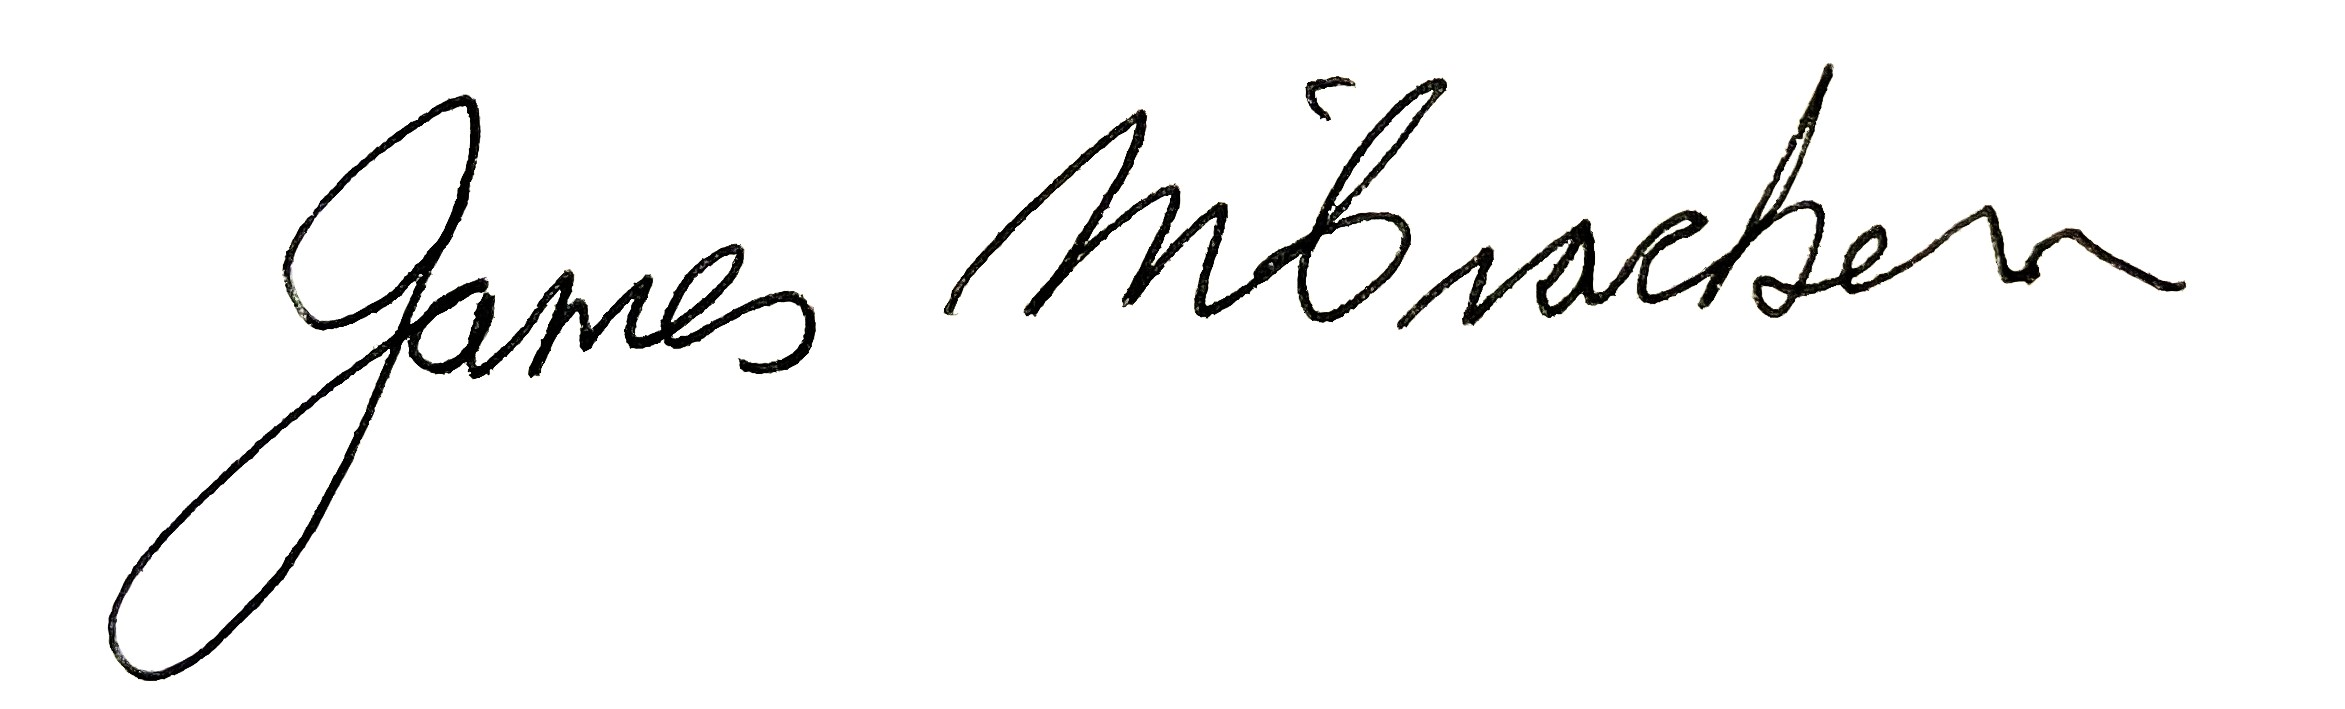 James McCracken